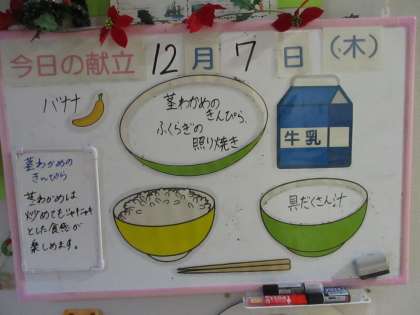 今日の献立 12月7日(木)
バナナ
茎わかめの
きんぴら
ふくらぎの
照り焼き
牛乳
茎わかめの
きんぴら
茎わかめは
炒めてもシャキシャキ
とした食感が
楽しめます。
具だくさん汁